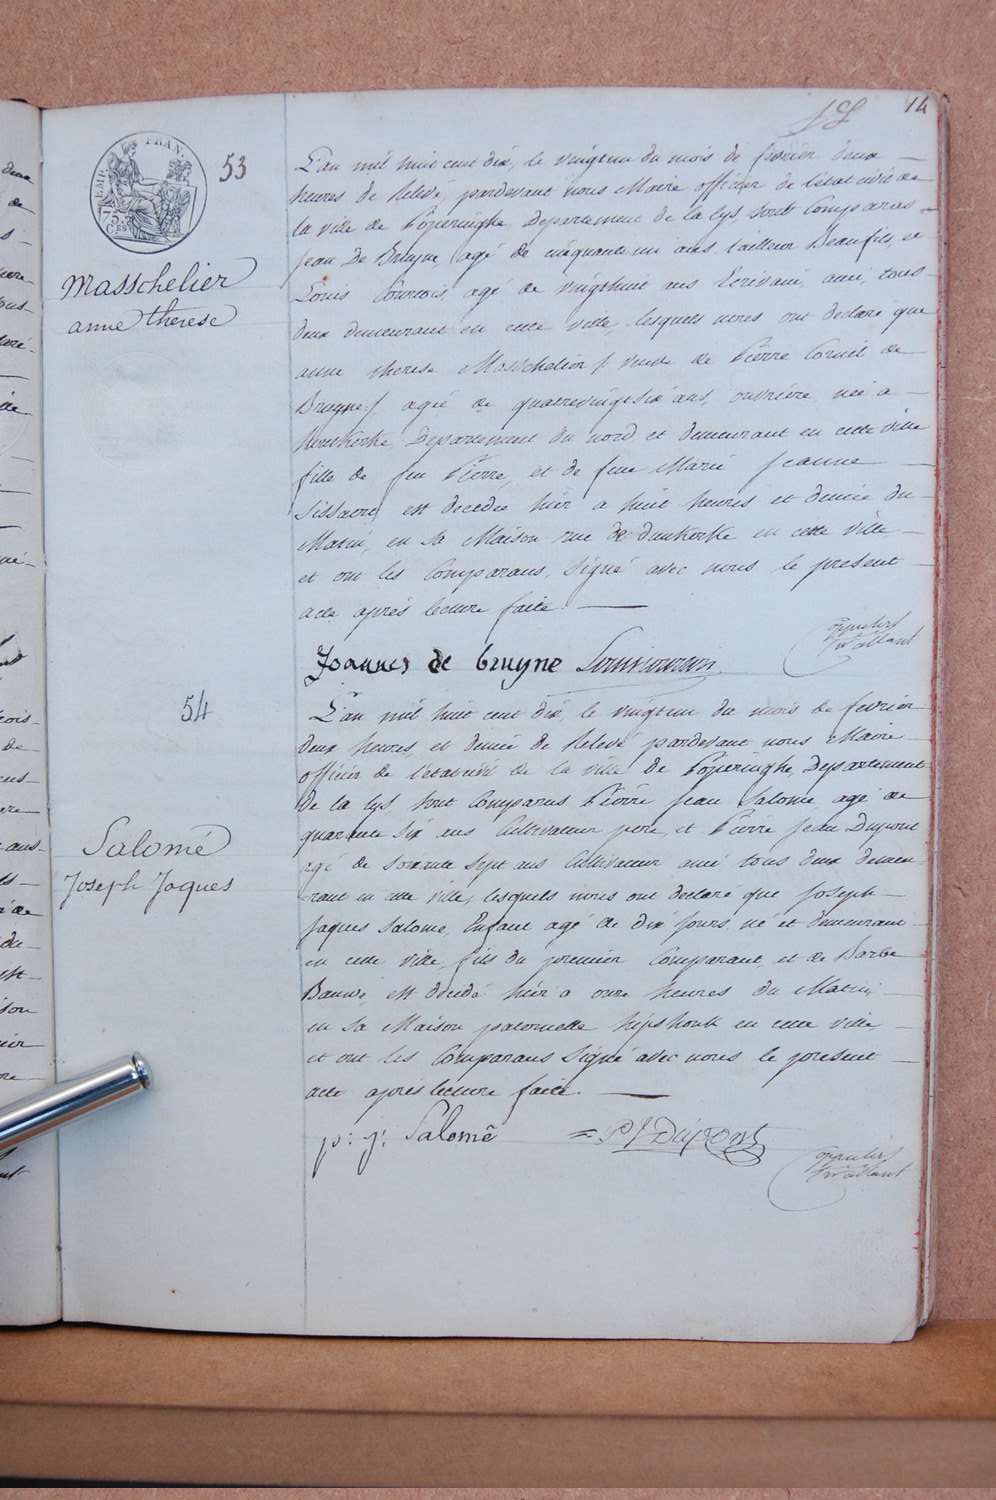 14
EMP. FRAN.
75
53
Masschelier
anne therese
L'an mil huit cent dix, le vingtun du mois de fevrier deux
heures de Relevé, pardevant nous Maire officier de l'état civil de
la ville de Poperinghe Departement de la Lys, sont Comparus
Jean De Bruyne agé de cinquante un ans, tailleur Beaufils, et
Louis Courtois, agé de vingthuit ans Ecrivain, ami, tous
deux demeurant en cette ville, lesquels nous ont declaré que
anne therese Masschelier / veuve de Pierre Cornil de
Bruyne / agée de quatrevingtsix ans, ouvrière née a
Departement du nord et demeurant en cette ville
fille de feu Pierre, et de feue Marie Jeanne
est decedée hier a huit heures et demie du
Matin, en sa Maison rue de dunkerke en cette ville
et ont les Comparans, signé avec nous le present
acte après lecture faite.
Joannes de bruyne
54
Salomé
Joseph Jaques
L'an mil huit cent dix, le vingtun du mois de fevrier
deux heures, et demie de Relevé pardevant nous Maire
officier de l'état civil de la ville de Poperinghe, Departement
de la Lys sont Comparus Pierre Jean Salome, agé de
quarante six ans Cultivateur pere, et Pierre Jean Dupont
agé de soixante sept ans Cultivateur ami tous deux demeu
rant en cette ville, lesquels nous ont declaré que Joseph
Jaques Salome, Enfant agé de dix jours, né et demeurant
en cette ville, fils du premier Comparant, et de Barbe
est decedé hier a onze heures du Matin
en sa Maison paternelle hipshoek en cette ville
et ont les Comparans signé avec nous le present
acte après lecture faite.
p: j: Salomé = P J Dupont